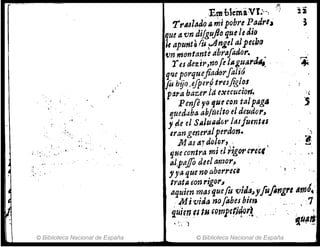 Emblema VI.
Trasládo a mi pobre Padre,
que a vn disgusto que le dio
le apuntò su Angel al pecho
vn montante abrasador.
Y es dezir, no se la guarda,
que porque fiador salió
su hijo, esperó tres siglos
para hazer la execucion.
Pensè yo que con tal paga
quedaba absuelto el deudor,
y de el Saluador las fuentes
eran general perdon.
Mas ay dolor,
que contra mi el rigor crece
al passo deel amor,
y ya que no aborrece
trata con rigor,
aquien mas que su vida, y su sangre amó,
Mi vida no sabes bien
quien es tu competidor?
© Biblioteca Nacional de España
© Biblioteca Nacional de España